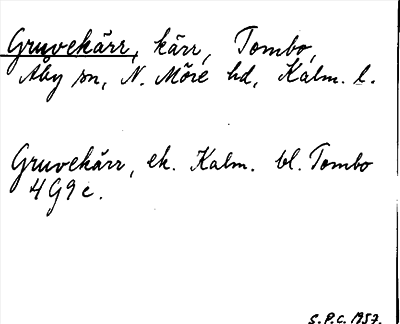 Gruvekärr, kärr, Tombo,
Åby sn, N. Möre hd, Kalm. l.
Gruvekärr, ek. Kalm. bl. Tombo
4G9c.
S.P.C. 1957.